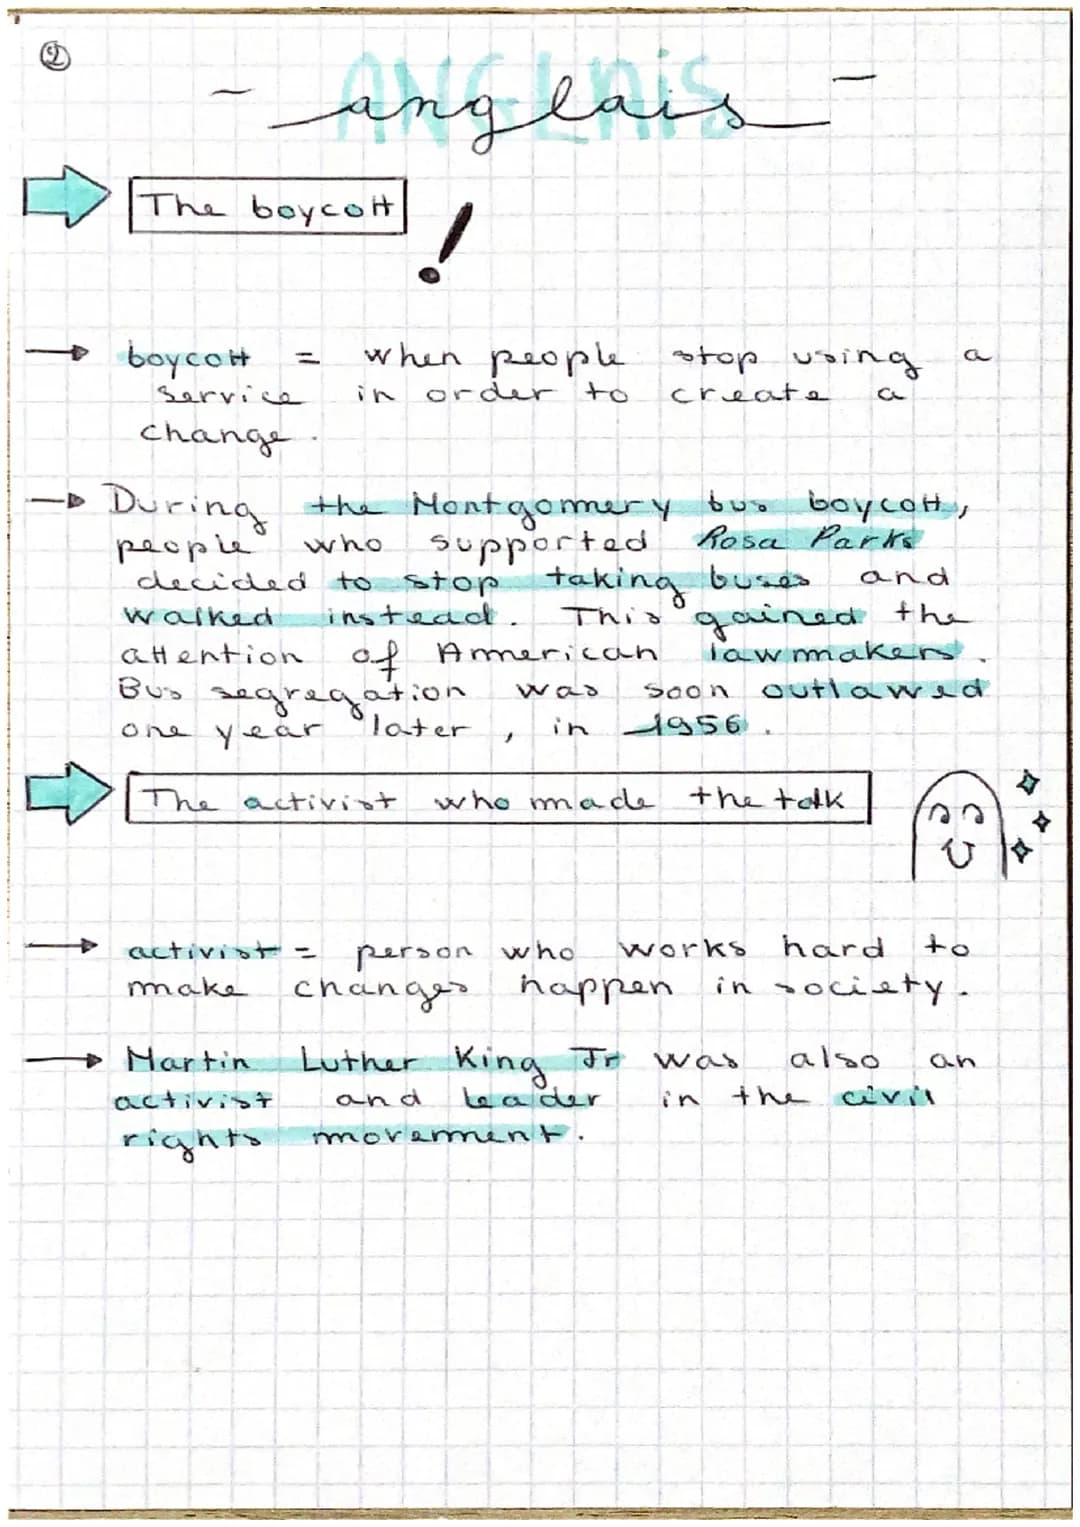 2
ANGLAiS
- anglais -
The boycott !
boycott = when people stop using a
service in order to create a
change.
During the Montgommery bus boycott,
people who supported Rosa Parks
decided to stop taking buses and
walked instead. This gained the
attention of American lawmakers.
Bus segregation was soon outlawed
one year later, in 1956.
The activist who made the talk
activist = person who works hard to
make changes happen in society.
Martin Luther King Jr was also an
activist and leader in the civil
rights movement.